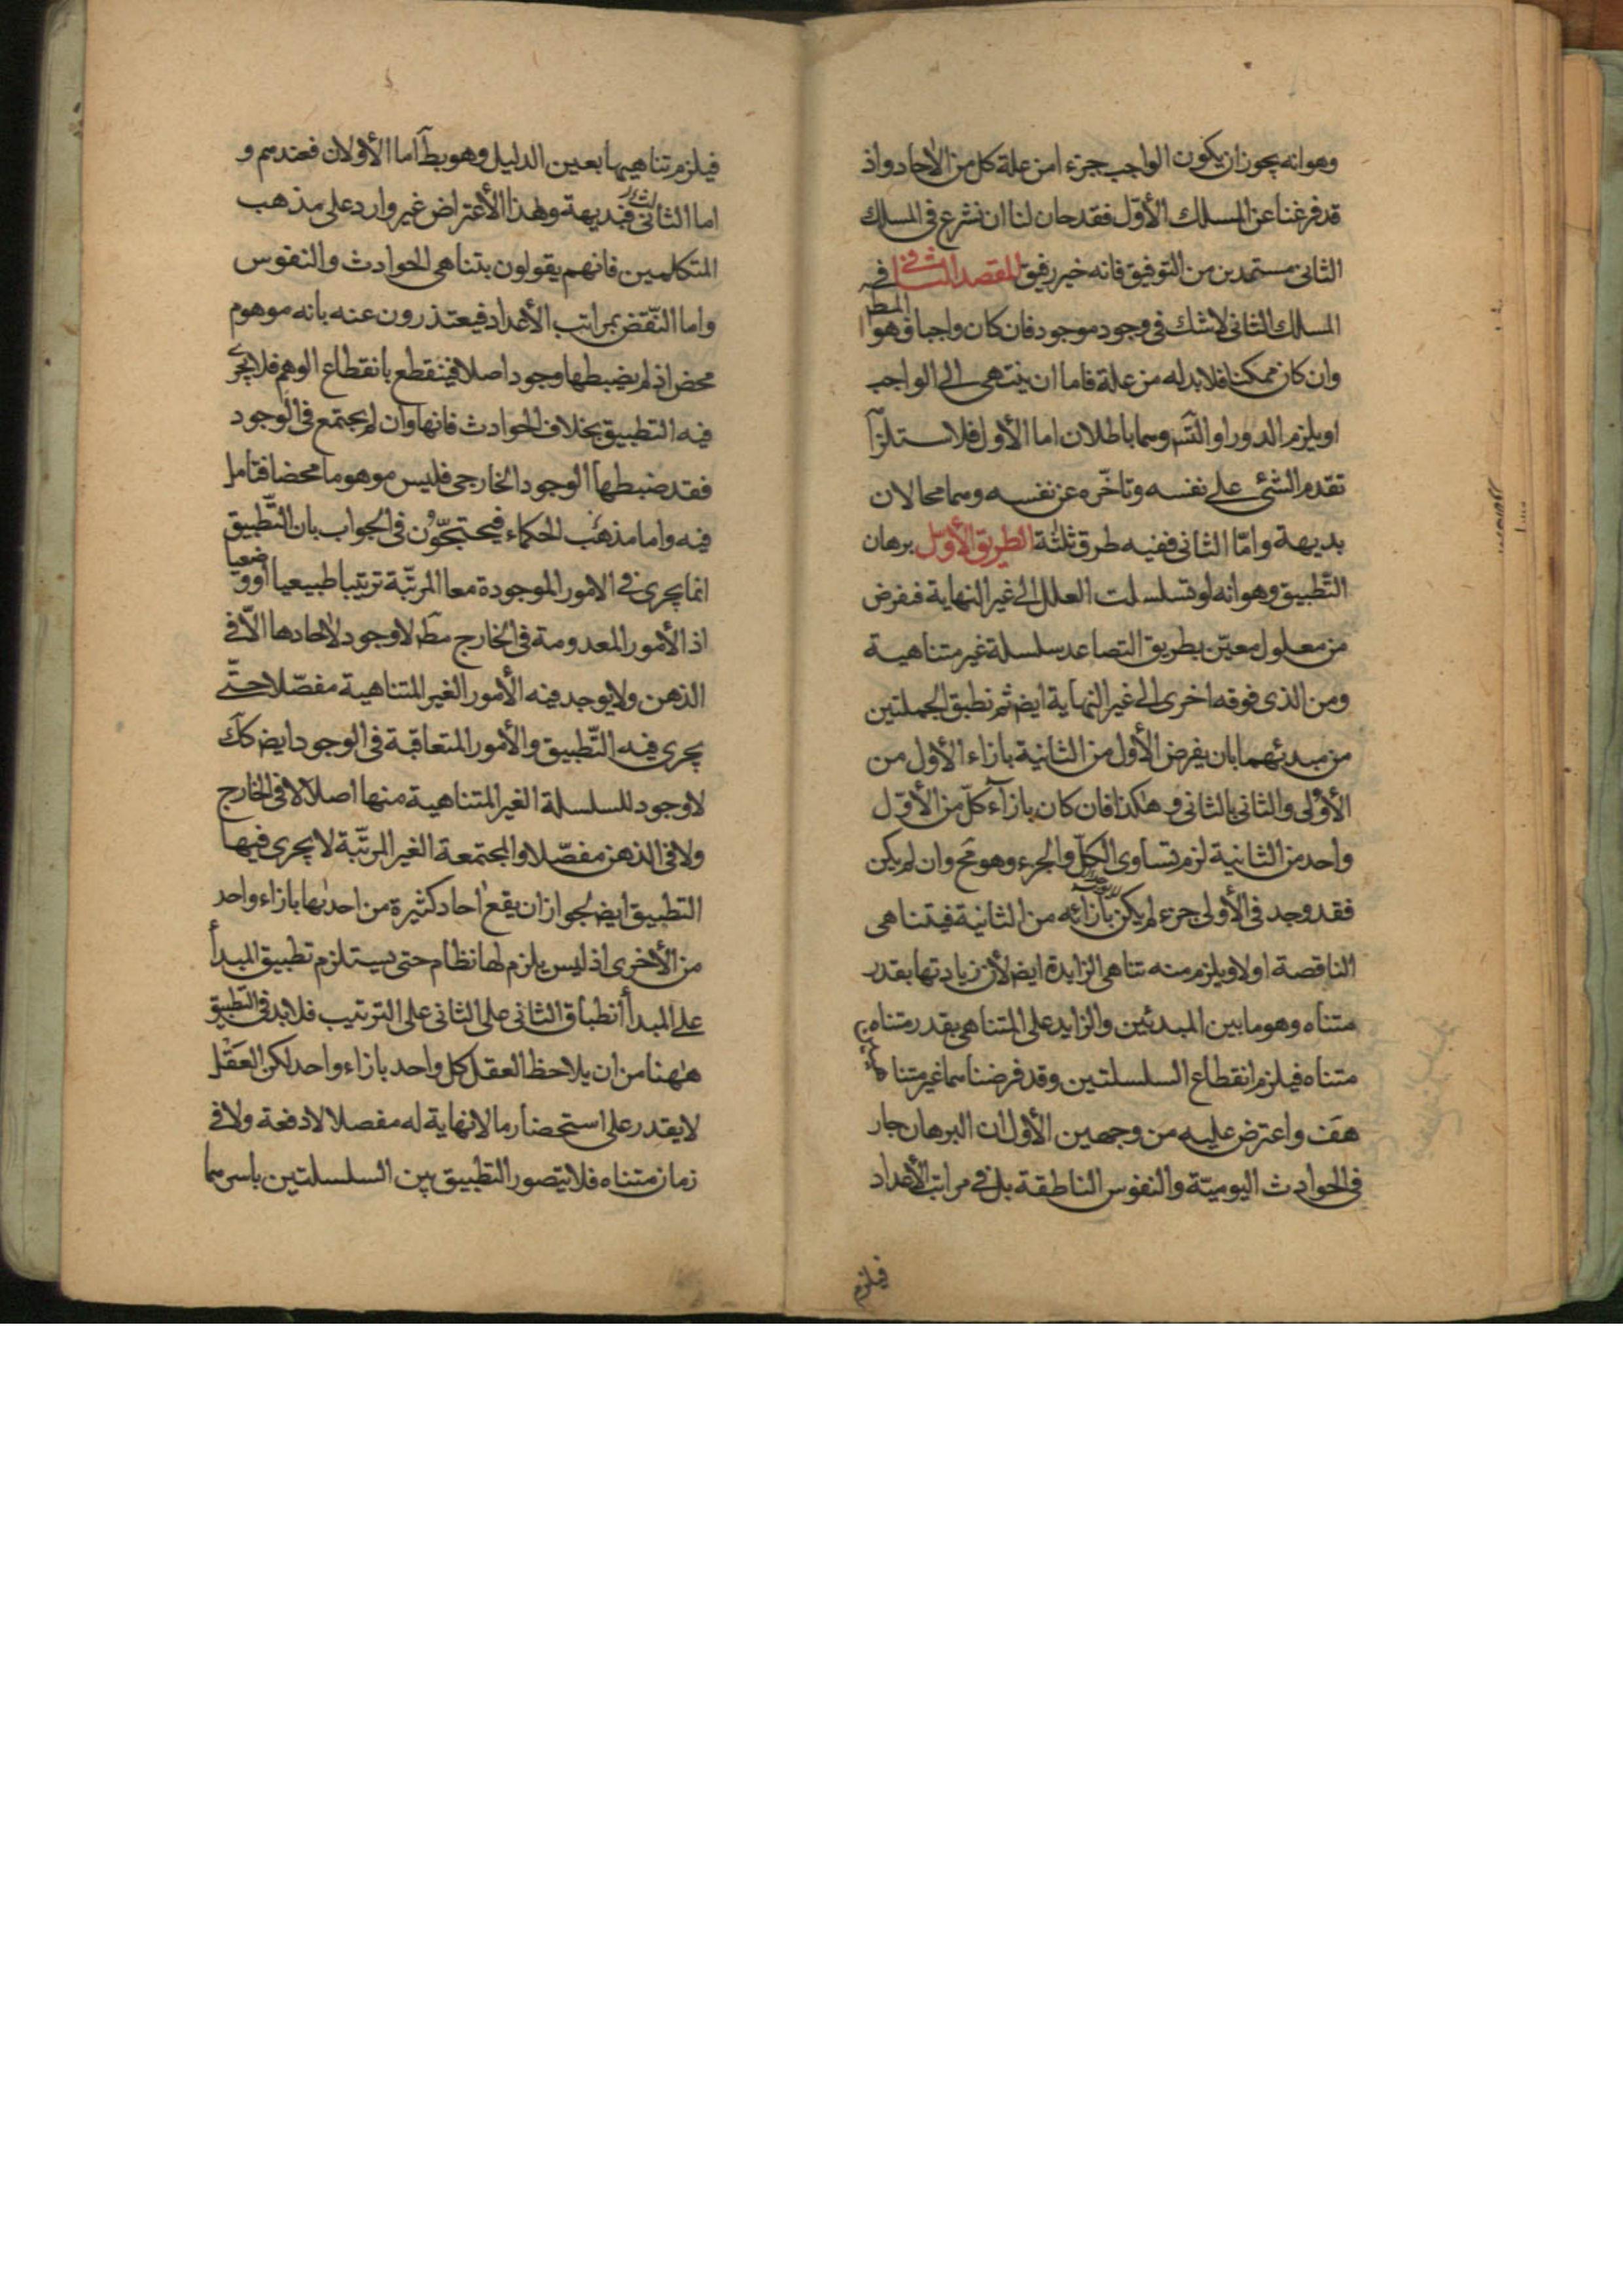 وهوانه يجوز ان يكون الواجب جزءا من علة كل من الاحاد واذ
قد فرغنا عن المسلك الأوّل فقد حان لنا ان نشرع في المسلك
الثانى مستمدين من التوفيق فانه خير رفيق المقصد الثانى في
المسلك الثانى لاشك في وجود موجود فان كان واجبا فهو المط
وان كان ممكنا فلابد له من علة فاما ان ينتهى الى الواجب
او يلزم الدور او التسّ وهما باطلان اما الأول فلاستلزآ
تقدم الشئى على نفسه وتاخّره عن نفسه وهما محالان
بديهة وامّا الثانى ففيه طرق ثلثة الطريق الأول برهان
التّطبيق وهوانه لو تسلسلت العلل الى غير النهاية فنفرض
من معلول معيّن بطريق التصاعد سلسلة غير متناهية
ومن الذى فوقه اخرى الى غير النهاية ايض ثم نطبق الجملتين
من مبدئهما بان يفرض الأول من الثانية بازاء الأول من
الأولى والثانى بالثانى وهكذا فان كان بازآء كلّ من الأوّل
واحد من الثانية لزم تساوى الكلّ والجزء وهو مح وان لم يكن
فقد وجد في الأولى جزء لم يكن بازائه من الثانية فيتناهى
الناقصة اولا ويلزم منه تناهى الزايدة ايض لأن زيادتها بقدر
متناه وهو ما بين المبدئين والزايد على المتناهى بقدر متناه
متناه فيلزم انقطاع السلسلتين وقد فرضناهما غير متناهيتين
هف واعترض عليه من وجهين الأول ان البرهان جار
في الحوادث اليوميّة والنفوس الناطقة بل في مراتب الأعداد
فيلزم
فيلزم تناهيها بعين الدليل وهو بط اما الأولان فعندهم و
اما الثالث فبديهة وهذا الأعتراض غير وارد على مذهب
المتكلمين فانهم يقولون بتناهى الحوادث والنفوس
واما النّقض بمراتب الأعداد فيعتذرون عنه بانه موهوم
محض اذ لم يضبطها وجود اصلا فينقطع بانقطاع الوهم فلا يجرى
فيه التطبيق بخلاف الحوادث فانها وان لم يجتمع في الوجود
فقد ضبطها الوجود الخارجى فليس موهوما محضا فتامل
فيه واما مذهب الحكماء فيحتجّون في الجواب بان التّطبيق
انما يجرى في الامور الموجودة معا المرتّبة ترتيبا طبيعيا او وضعيا
اذ الأمور المعدومة في الخارج مط لا وجود لاحادها الّا في
الذهن ولا يوجد فيه الأمور الغير المتناهية مفصّلا حتّى
يجرى فيه التّطبيق والأمور المتعاقبة في الوجود ايض كك
لا وجود للسلسلة الغير المتناهية منها اصلا لا في الخارج
ولا في الذهن مفصّلا والمجتمعة الغير المرتّبة لا يجرى فيها
التطبيق ايض لجواز ان يقع احاد كثيرة من احدىها بازاء واحد
من الأخرى اذ ليس يلزم لها نظام حتى يستلزم تطبيق المبدأ
على المبدأ انطباق الثانى على الثانى على الترتيب فلابد في التّطبيق
ههنا من ان يلاحظ العقل كل واحد بازاء واحد لكن العقل
لا يقدر على استحضار ما لا نهاية له مفصلا لا دفعة ولا في
زمان متناه فلا يتصور التطبيق بين السلسلتين باسرهما